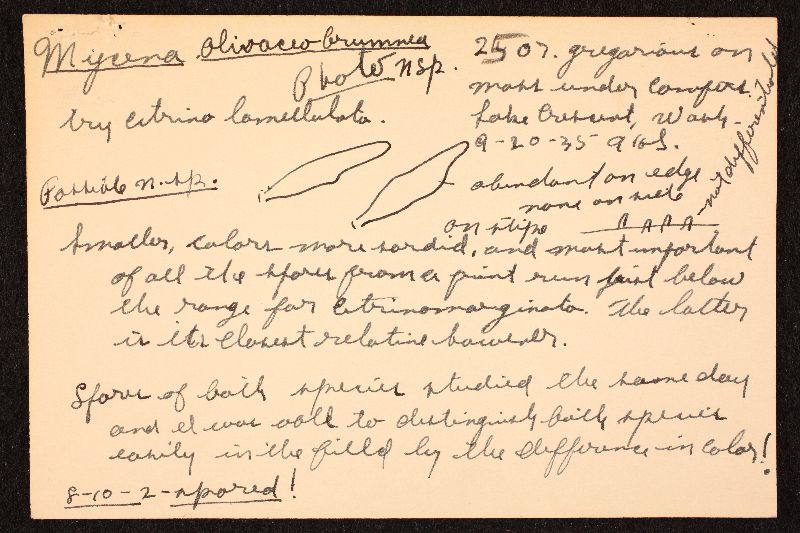 Mycena olivaceo brumnea
Photo nsp.
try citrino lamellulata.
Possible n. sp.
2507. gregarious on
moss under conifers.
Lake Crescent, Wash-
9-20-35 AHS.
abundant on edge
none on side
on stipe
not differentiated
Smaller, colors more sordid, and most important
of all the spores from a print run just below
the range for citrinomarginata. The latter
is its closest relative however.
Spores of both species studied the same day
and I was able to distinguish both species
easily in the field by the difference in color!
8-10-2-spored!